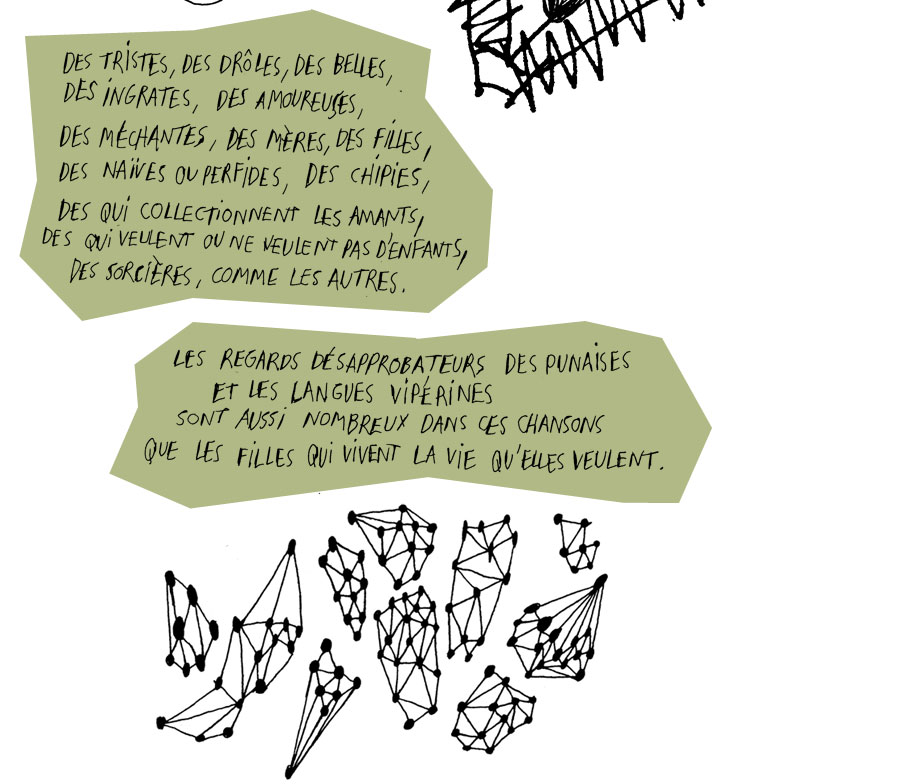 DES TRISTES, DES DRÔLES, DES BELLES,
DES INGRATES, DES AMOUREUSES,
DES MÉCHANTES, DES MÈRES, DES FILLES,
DES NAÏVES OU PERFIDES, DES CHIPIES,
DES QUI COLLECTIONNENT LES AMANTS,
DES QUI VEULENT OU NE VEULENT PAS D'ENFANTS,
DES SORCIÈRES, COMME LES AUTRES.
LES REGARDS DÉSAPPROBATEURS DES PUNAISES
ET LES LANGUES VIPÉRINES
SONT AUSSI NOMBREUX DANS CES CHANSONS
QUE LES FILLES QUI VIVENT LA VIE QU'ELLES VEULENT.